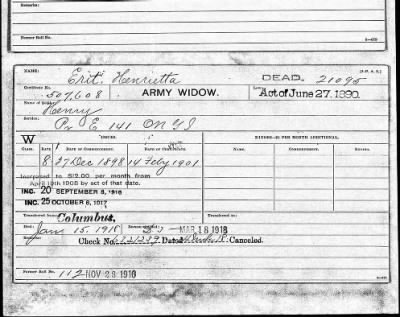 Remarks:
Former Roll No.
3—479
NAME: Erit, Henrietta DEAD. 21095
Certificate No. 507,608 ARMY WIDOW. Act of June 27, 1890.
Name of Soldier: Henry
Service: Pr E 141 O N G I
W ISSUES. $2 PER MONTH ADDITIONAL.
CLASS. RATE. DATE OF COMMENCEMENT. DATE OF CERTIFICATE. COMMENCEMENT.
8 27 Dec 1898 14 Feby 1901
Increased to $12.00 per month from
April 19th 1908 by act of that date.
INC. 20 SEPTEMBER 8, 1916
INC. 25 OCTOBER 6, 1917
Transferred from Columbus,
Died: Jan 15, 1918 MAR 18 1918
Check No. 121239 Dated Canceled.
Remarks:
Former Roll No. 112 NOV 28 1910